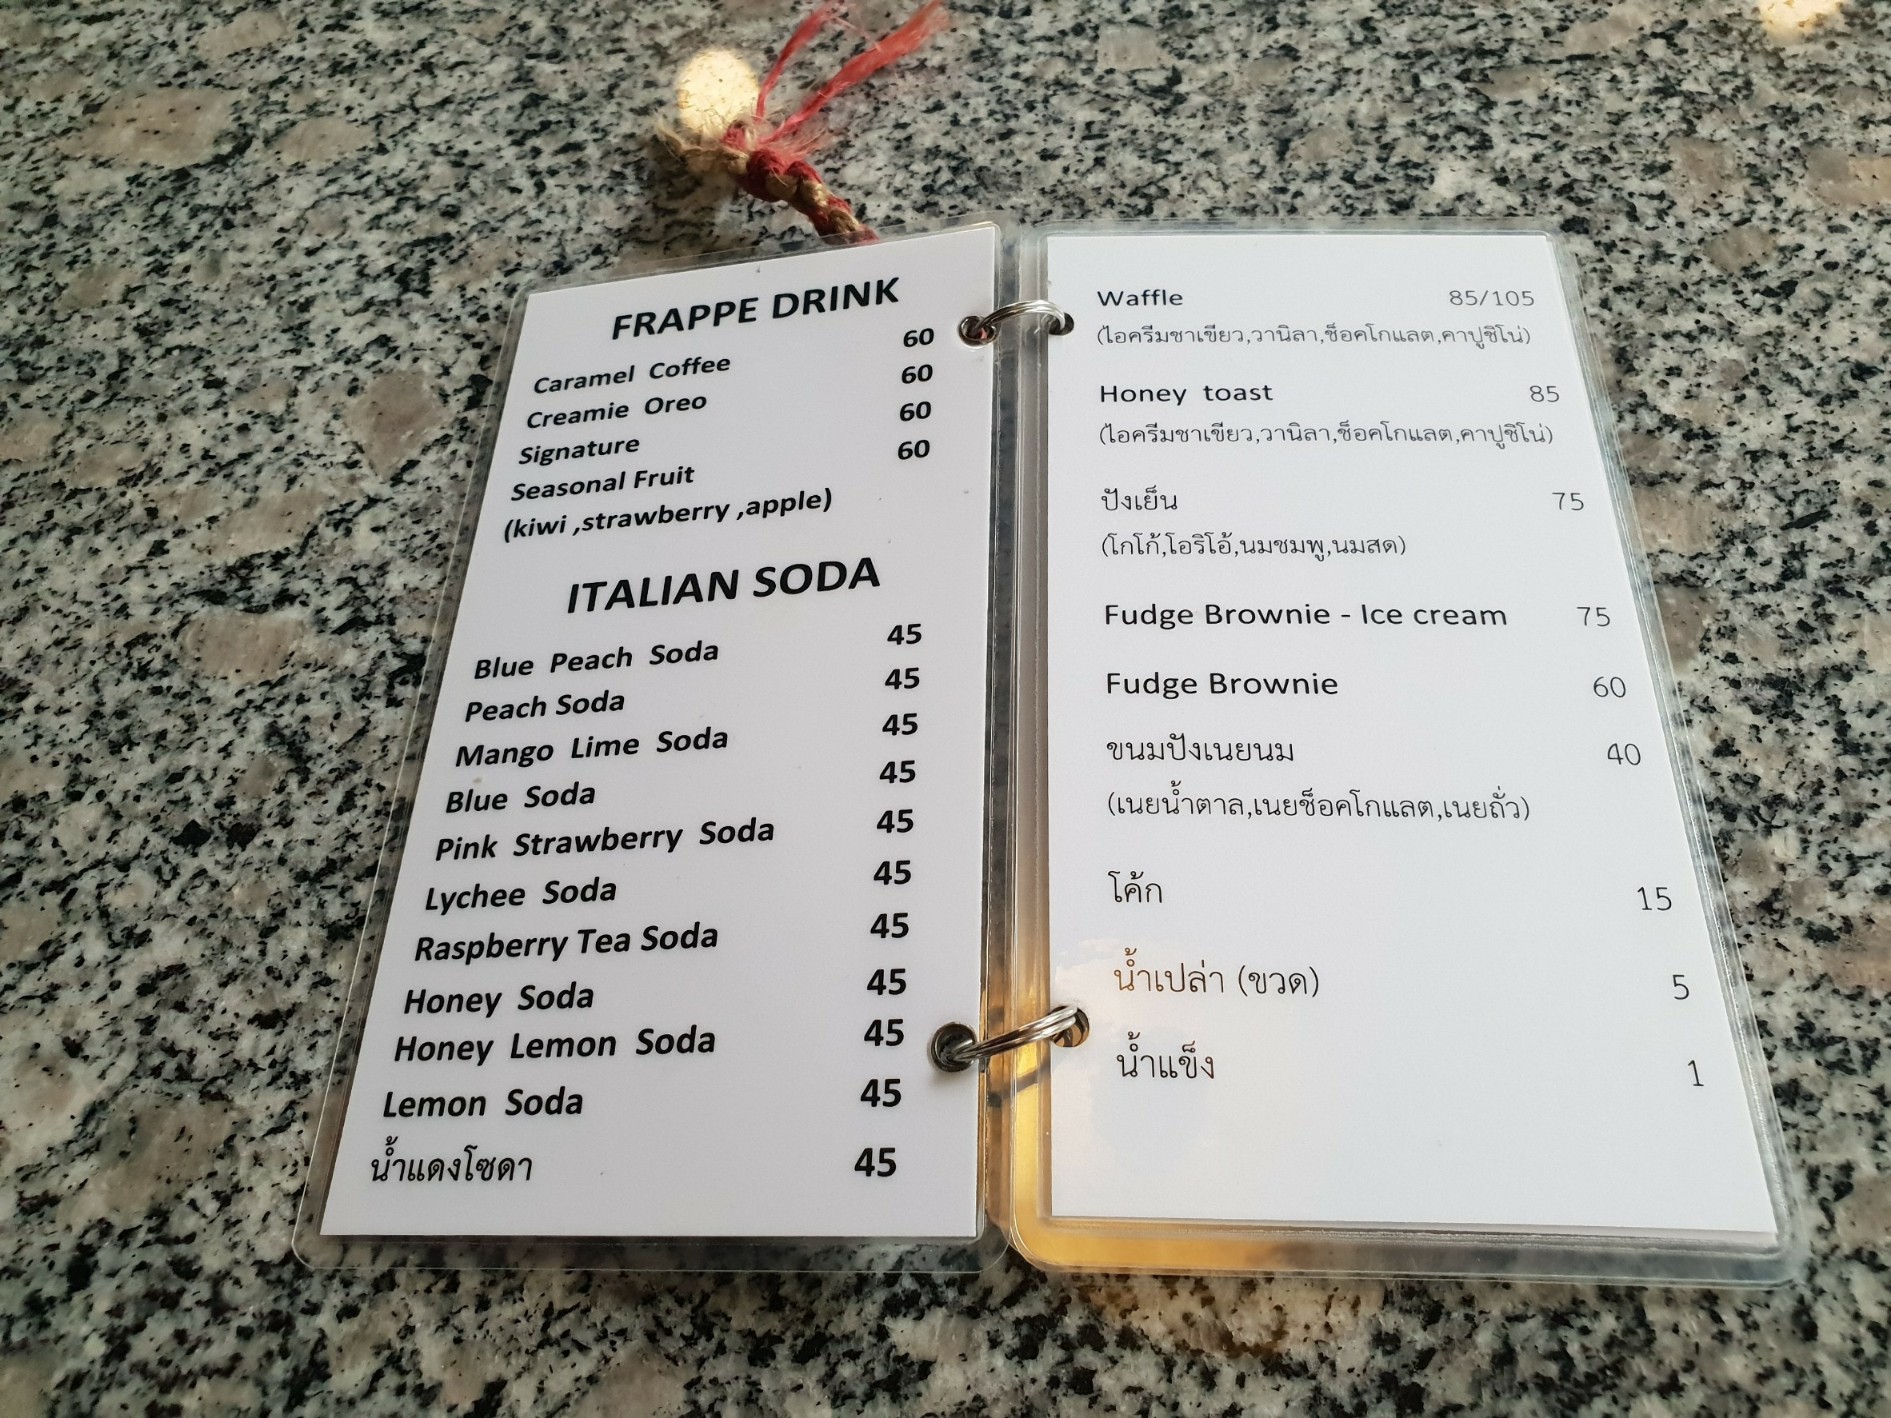 FRAPPE DRINK
Caramel Coffee 60
Creamie Oreo 60
Signature 60
Seasonal Fruit 60
(kiwi ,strawberry ,apple)
ITALIAN SODA
Blue Peach Soda 45
Peach Soda 45
Mango Lime Soda 45
Blue Soda 45
Pink Strawberry Soda 45
Lychee Soda 45
Raspberry Tea Soda 45
Honey Soda 45
Honey Lemon Soda 45
Lemon Soda 45
น้ำแดงโซดา 45
Waffle 85/105
(ไอครีมชาเขียว,วานิลา,ช็อคโกแลต,คาปูชิโน่)
Honey toast 85
(ไอครีมชาเขียว,วานิลา,ช็อคโกแลต,คาปูชิโน่)
ปังเย็น 75
(โกโก้,โอริโอ้,นมชมพู,นมสด)
Fudge Brownie - Ice cream 75
Fudge Brownie 60
ขนมปังเนยนม 40
(เนยน้ำตาล,เนยช็อคโกแลต,เนยถั่ว)
โค้ก 15
น้ำเปล่า (ขวด) 5
น้ำแข็ง 1